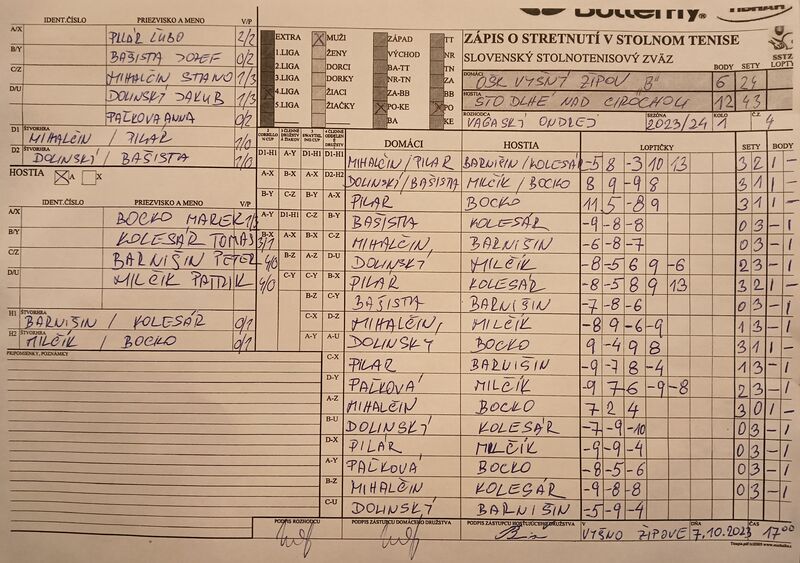 Butterfly
IDENT.ČÍSLO PRIEZVISKO A MENO V/P
A/X PILÁR ĽUBO 2/2
B/Y BAŠISTA JOZEF 0/2
C/Z MIHALČIN STANO 1/3
D/U DOLINSKÝ JAKUB 1/3
PAČKOVÁ ANNA 0/2
D1 ŠTVORHRA MIHALČIN / PILAR 1/0
D2 ŠTVORHRA DOLINSKÝ / BAŠISTA 1/0
HOSTIA A X
IDENT.ČÍSLO PRIEZVISKO A MENO V/P
A/X BOCKO MAREK 1/3
B/Y KOLESÁR TOMÁŠ 3/1
C/Z BARNIŠIN PETER 4/0
D/U MILČÍK PATRIK 4/0
H1 ŠTVORHRA BARNIŠIN / KOLESÁR 0/1
H2 ŠTVORHRA MILČÍK / BOCKO 0/1
PRIPOMIENKY, POZNÁMKY
EXTRA MUŽI ZÁPAD TT
1.LIGA ŽENY VÝCHOD NR
2.LIGA DORCI BA-TT TN
3.LIGA DORKY NR-TN ZA
4.LIGA ŽIACI ZA-BB BB
5.LIGA ŽIAČKY PO-KE PO
BA KE
ZÁPIS O STRETNUTÍ V STOLNOM TENISE
SLOVENSKÝ STOLNOTENISOVÝ ZVÄZ
SSTZ
BODY SETY LOPTY
DOMÁCI OŠK VYŠNÝ ŽIPOV "B" 6 24
HOSTIA STO DLHÉ NAD CIROCHOU 12 43
ROZHODCA VAGASKÝ ONDREJ SEZÓNA 2023/24 KOLO 1 Č.Z. 4
DOMÁCI HOSTIA LOPTIČKY SETY BODY
D1-H1 MIHALČIN/PILAR BARNIŠIN/KOLESÁR -5 8 -3 10 13 3 2 1 -
D2-H2 DOLINSKÝ/BAŠISTA MILČÍK/BOCKO 8 9 -9 8 3 1 1 -
A-X PILAR BOCKO 11 5 -8 9 3 1 1 -
B-Y BAŠISTA KOLESÁR -9 -8 -8 0 3 - 1
C-Z MIHALČIN BARNIŠIN -6 -8 -7 0 3 - 1
D-U DOLINSKÝ MILČÍK -8 -5 6 9 -6 2 3 - 1
PILAR KOLESÁR -8 -5 8 9 13 3 2 1 -
BAŠISTA BARNIŠIN -7 -8 -6 0 3 - 1
D-Z MIHALČIN, MILČÍK -8 9 -6 -9 1 3 - 1
A-U DOLINSKÝ BOCKO 9 -4 9 8 3 1 1 -
C-X PILAR BARNIŠIN -9 -7 8 -4 1 3 - 1
D-Y PAČKOVÁ MILČÍK -9 7 6 -9 -8 2 3 - 1
A-Z MIHALČIN BOCKO 7 2 4 3 0 1 -
B-U DOLINSKÝ KOLESÁR -7 -9 -10 0 3 - 1
D-X PILÁR MILČÍK -9 -9 -4 0 3 - 1
A-Y PAČKOVÁ BOCKO -8 -5 -6 0 3 - 1
B-Z MIHALČIN KOLESÁR -9 -8 -8 0 3 - 1
C-U DOLINSKÝ BARNIŠIN -5 -9 -4
PODPIS ROZHODCU PODPIS ZÁSTUPCU DOMÁCEHO DRUŽSTVA PODPIS ZÁSTUPCU HOSŤUJÚCEHO DRUŽSTVA V VYŠNO ŽIPOVE DŇA 7.10.2023 ČAS 17 00